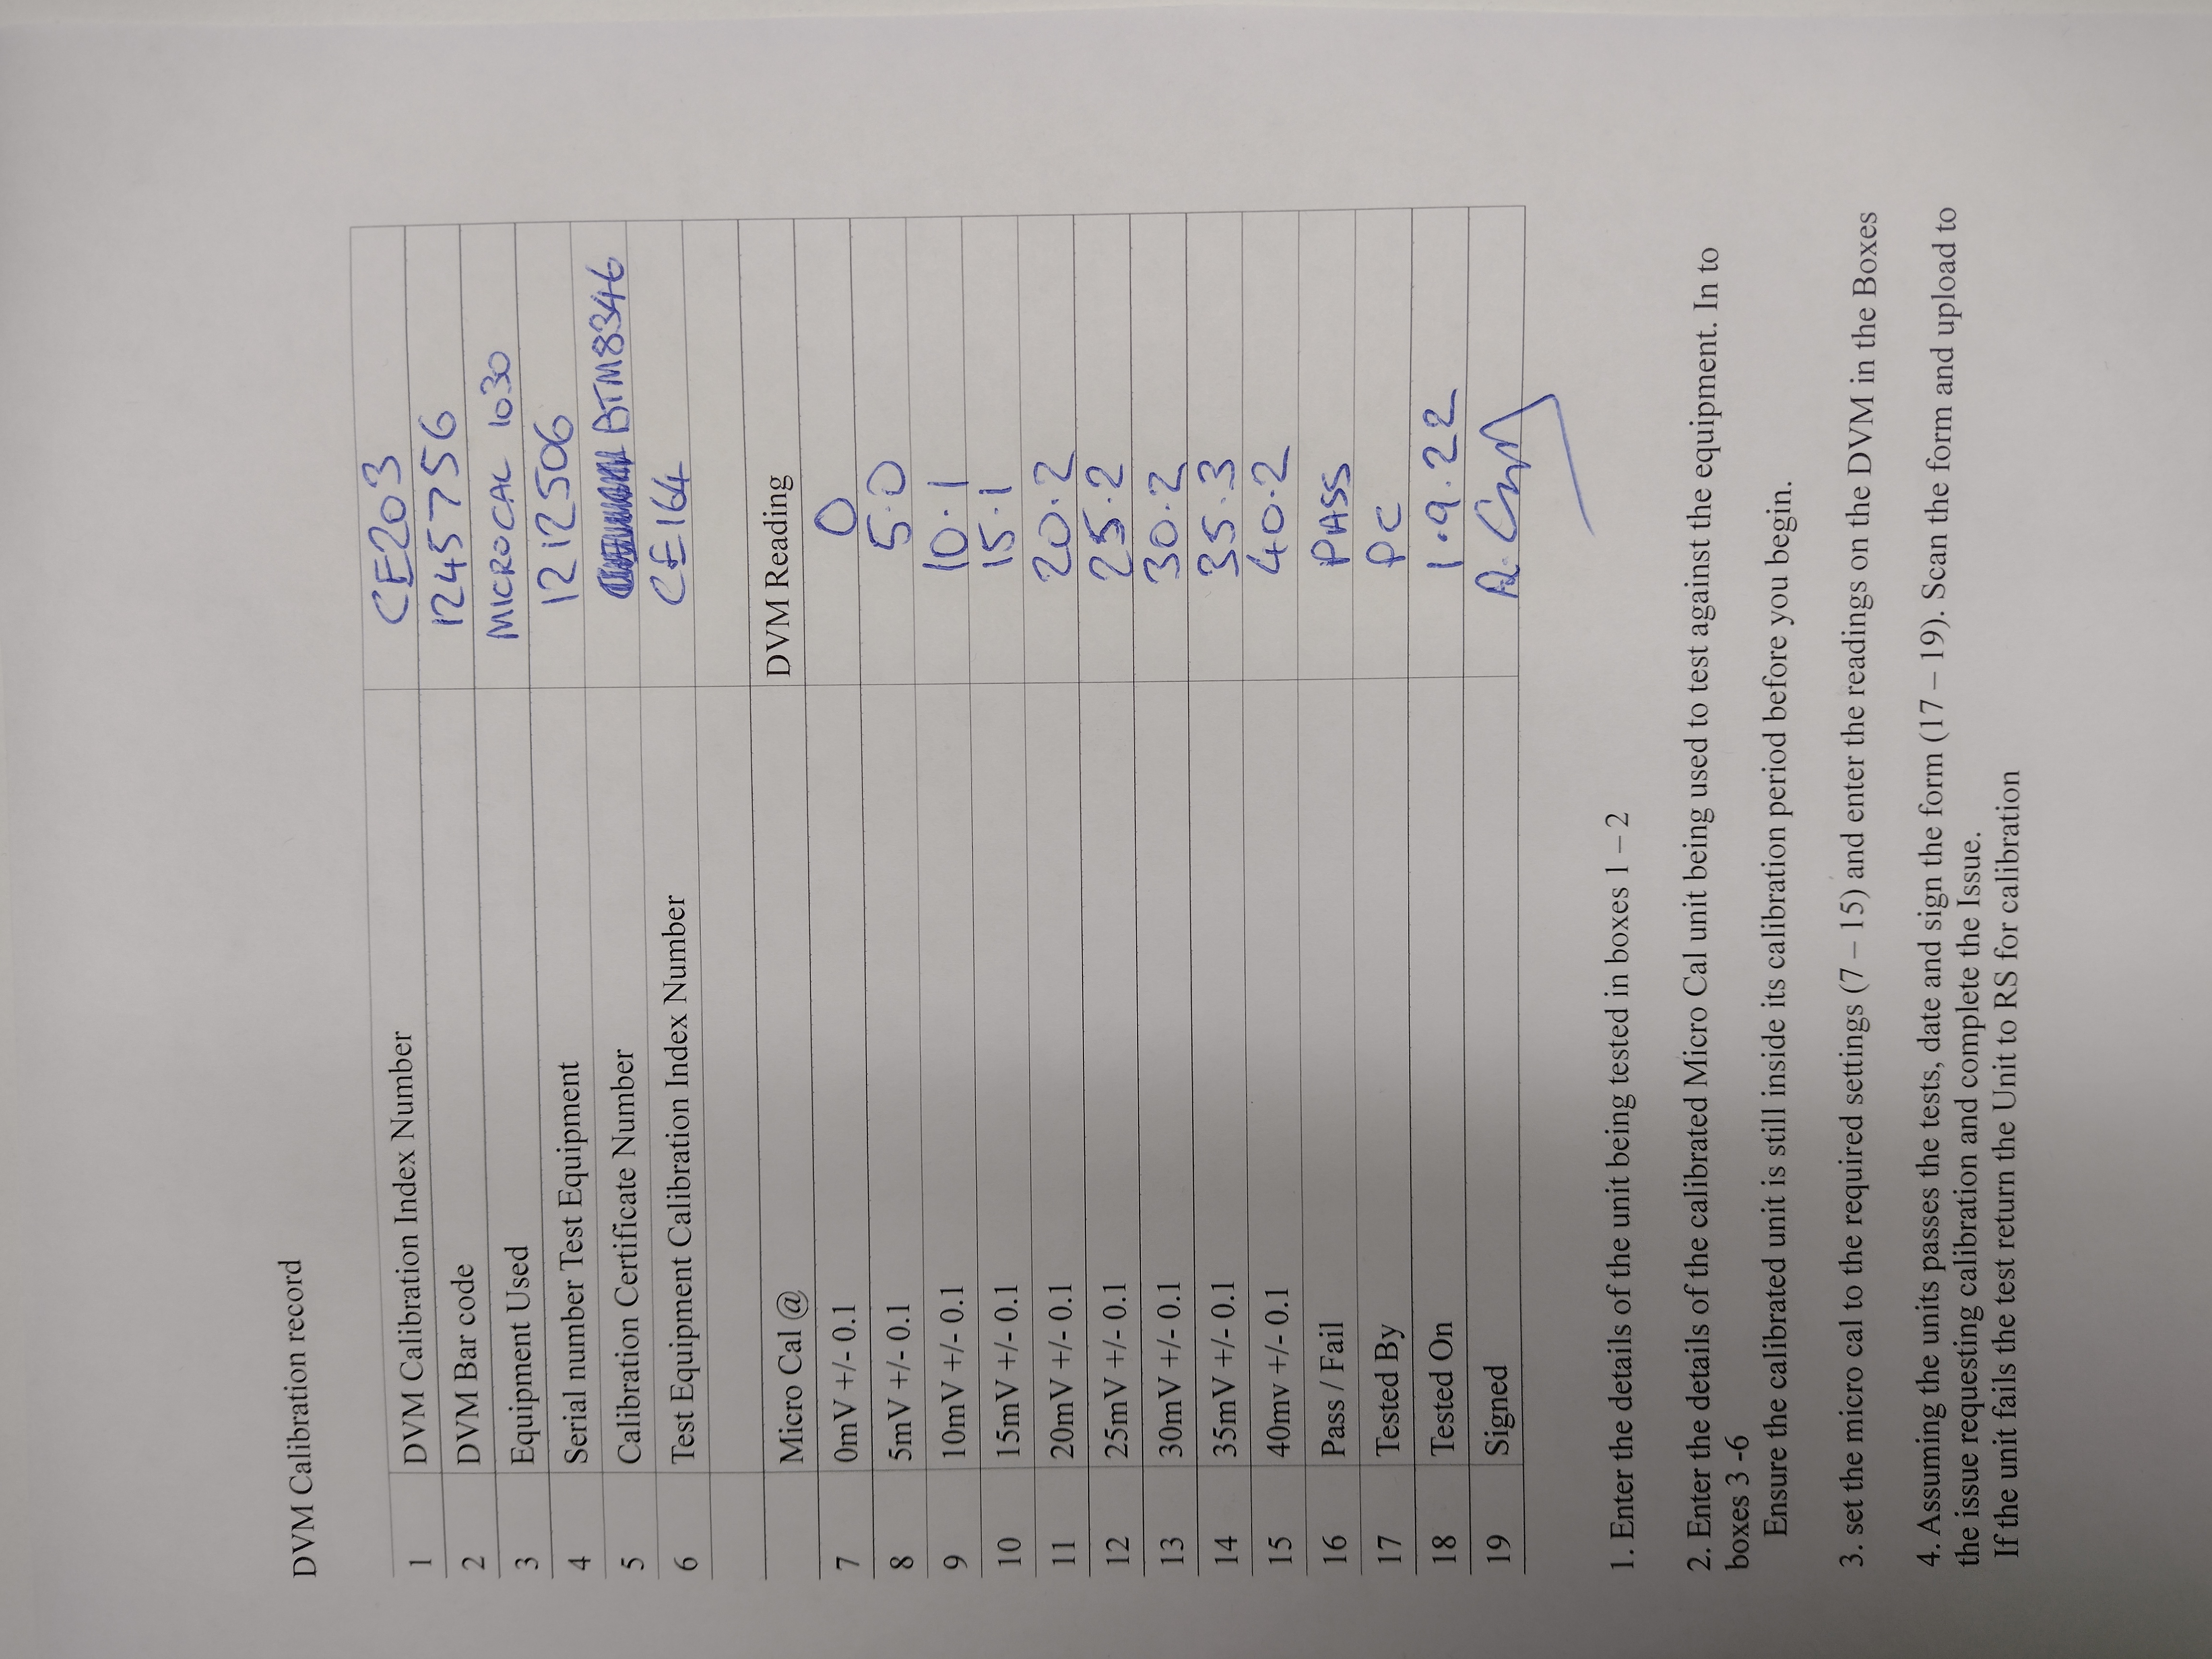 DVM Calibration record
1 DVM Calibration Index Number CE203
2 DVM Bar code 1245756
3 Equipment Used MICROCAL 1030
4 Serial number Test Equipment 1212506
5 Calibration Certificate Number BTM8346
6 Test Equipment Calibration Index Number CE164
Micro Cal @ DVM Reading
7 0mV +/- 0.1 0
8 5mV +/- 0.1 5.0
9 10mV +/- 0.1 10.1
10 15mV +/- 0.1 15.1
11 20mV +/- 0.1 20.2
12 25mV +/- 0.1 25.2
13 30mV +/- 0.1 30.2
14 35mV +/- 0.1 35.3
15 40mv +/- 0.1 40.2
16 Pass / Fail PASS
17 Tested By PC
18 Tested On 1.9.22
19 Signed
1. Enter the details of the unit being tested in boxes 1 – 2
2. Enter the details of the calibrated Micro Cal unit being used to test against the equipment. In to
boxes 3 -6
Ensure the calibrated unit is still inside its calibration period before you begin.
3. set the micro cal to the required settings (7 – 15) and enter the readings on the DVM in the Boxes
4. Assuming the units passes the tests, date and sign the form (17 – 19). Scan the form and upload to
the issue requesting calibration and complete the Issue.
If the unit fails the test return the Unit to RS for calibration